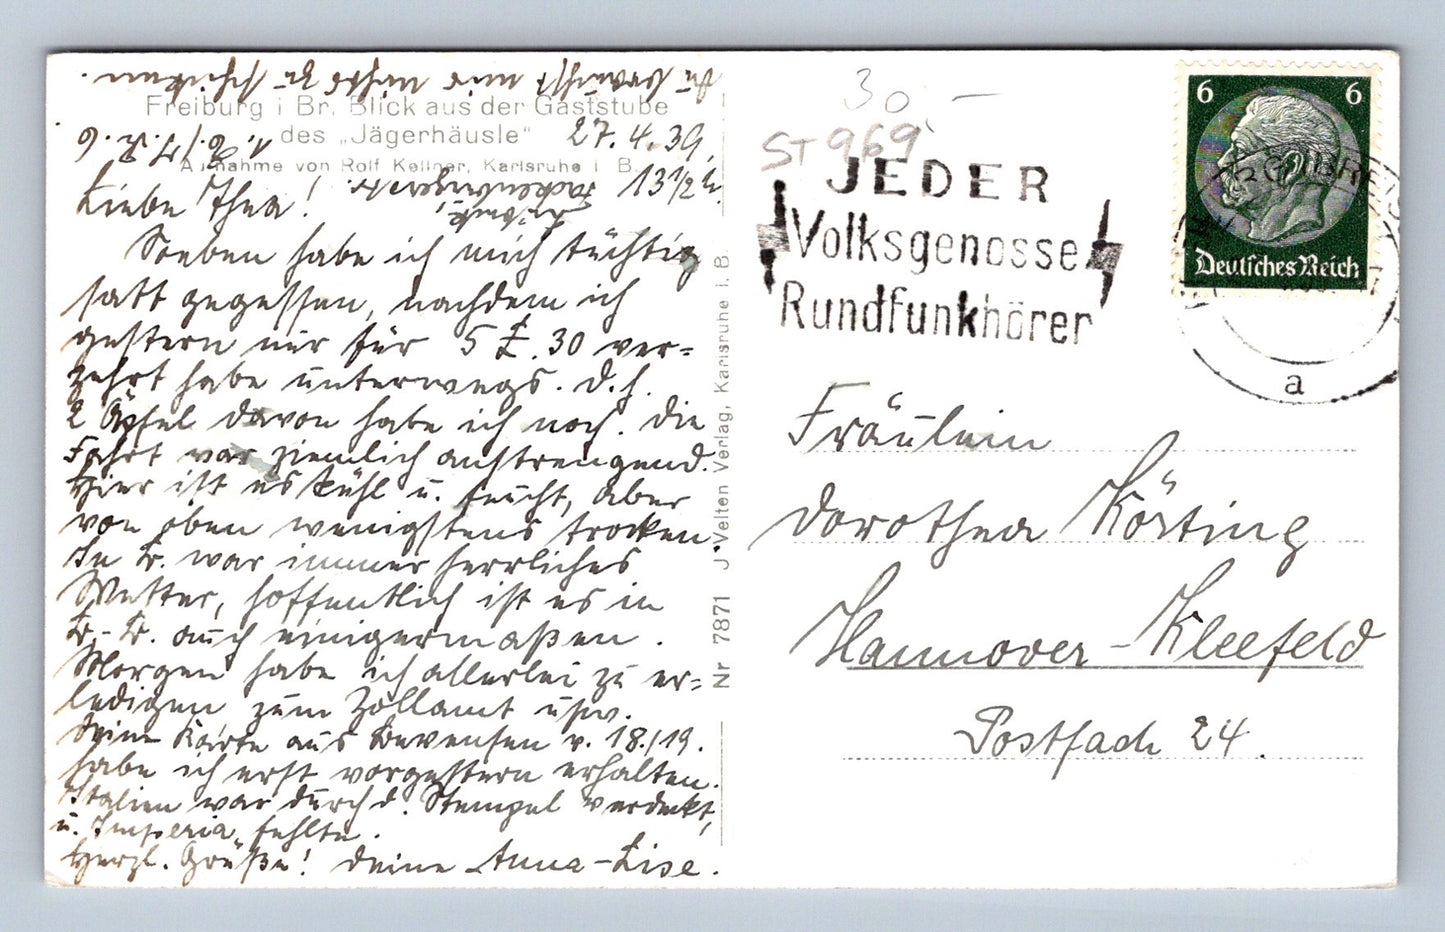 Freiburg i Br. Blick aus der Gaststube
des „Jägerhäusle"
Aufnahme von Rolf Kellner, Karlsruhe i B.
27.4.39.
13 1/2 h.
Liebe Thea!
Soeben habe ich mich tüchtig
satt gegessen, nachdem ich
gestern nur für 5 £. 30 ver=
zehrt habe unterwegs. D.h.
2 Äpfel davon habe ich noch. Die
Fahrt war ziemlich anstrengend.
Hier ist es kühl u. feucht, aber
von oben wenigstens trocken.
In war immer herrliches
Wetter, hoffentlich ist es in
auch einigermaßen.
Morgen habe ich allerlei zu er=
ledigen zum Zollamt usw.
Deine Karte aus Bevensen v. 18./19.
habe ich erst vorgestern erhalten.
Italien war durch d. Stempel verdeckt,
u. „Imperia" fehlte.
Herzl. Grüße! Deine Anna-Lise.
Du brauchst mir nichts zu schicken.
Nr 7871 J. Velten Verlag, Karlsruhe i. B.
30 –
ST 969
JEDER
Volksgenosse
Rundfunkhörer
6 6
Deutsches Reich
a
Fräulein
Dorothea Körting
Hannover-Kleefeld
Postfach 24.